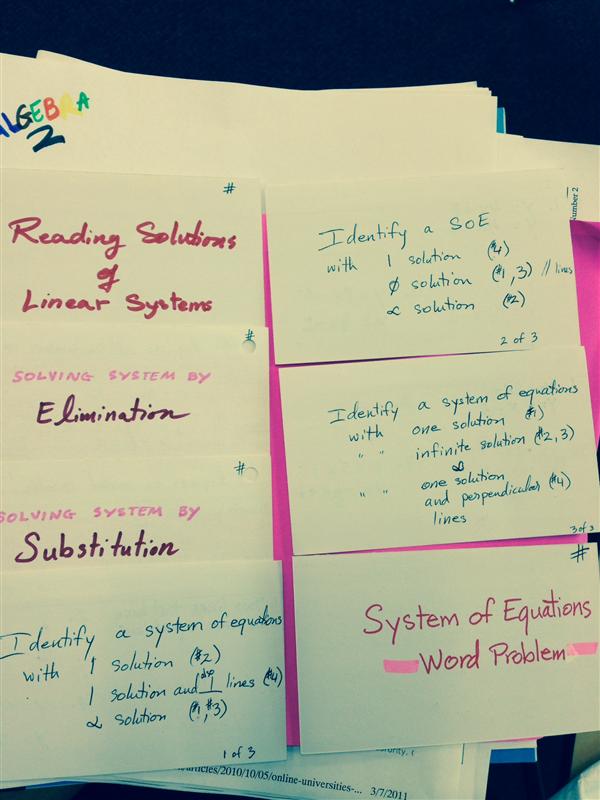 ALGEBRA
2
#
Reading Solutions
of
Linear Systems
#
SOLVING SYSTEM BY
Elimination
#
SOLVING SYSTEM BY
Substitution
Identify a system of equations
with 1 solution (#2)
1 solution and also ⊥ lines (#4)
∝ solution (#1, #3)
1 of 3
Number 2
Identify a SOE
with 1 solution (#4)
∅ solution (#1, 3) // lines
∝ solution (#2)
2 of 3
Identify a system of equations
with one solution (#1)
" " infinite solution (#2, 3)
∞
" " one solution
and perpendicular (#4)
lines
3 of 3
#
System of Equations
Word Problem
/articles/2010/10/05/online-universities-... 3/7/2011